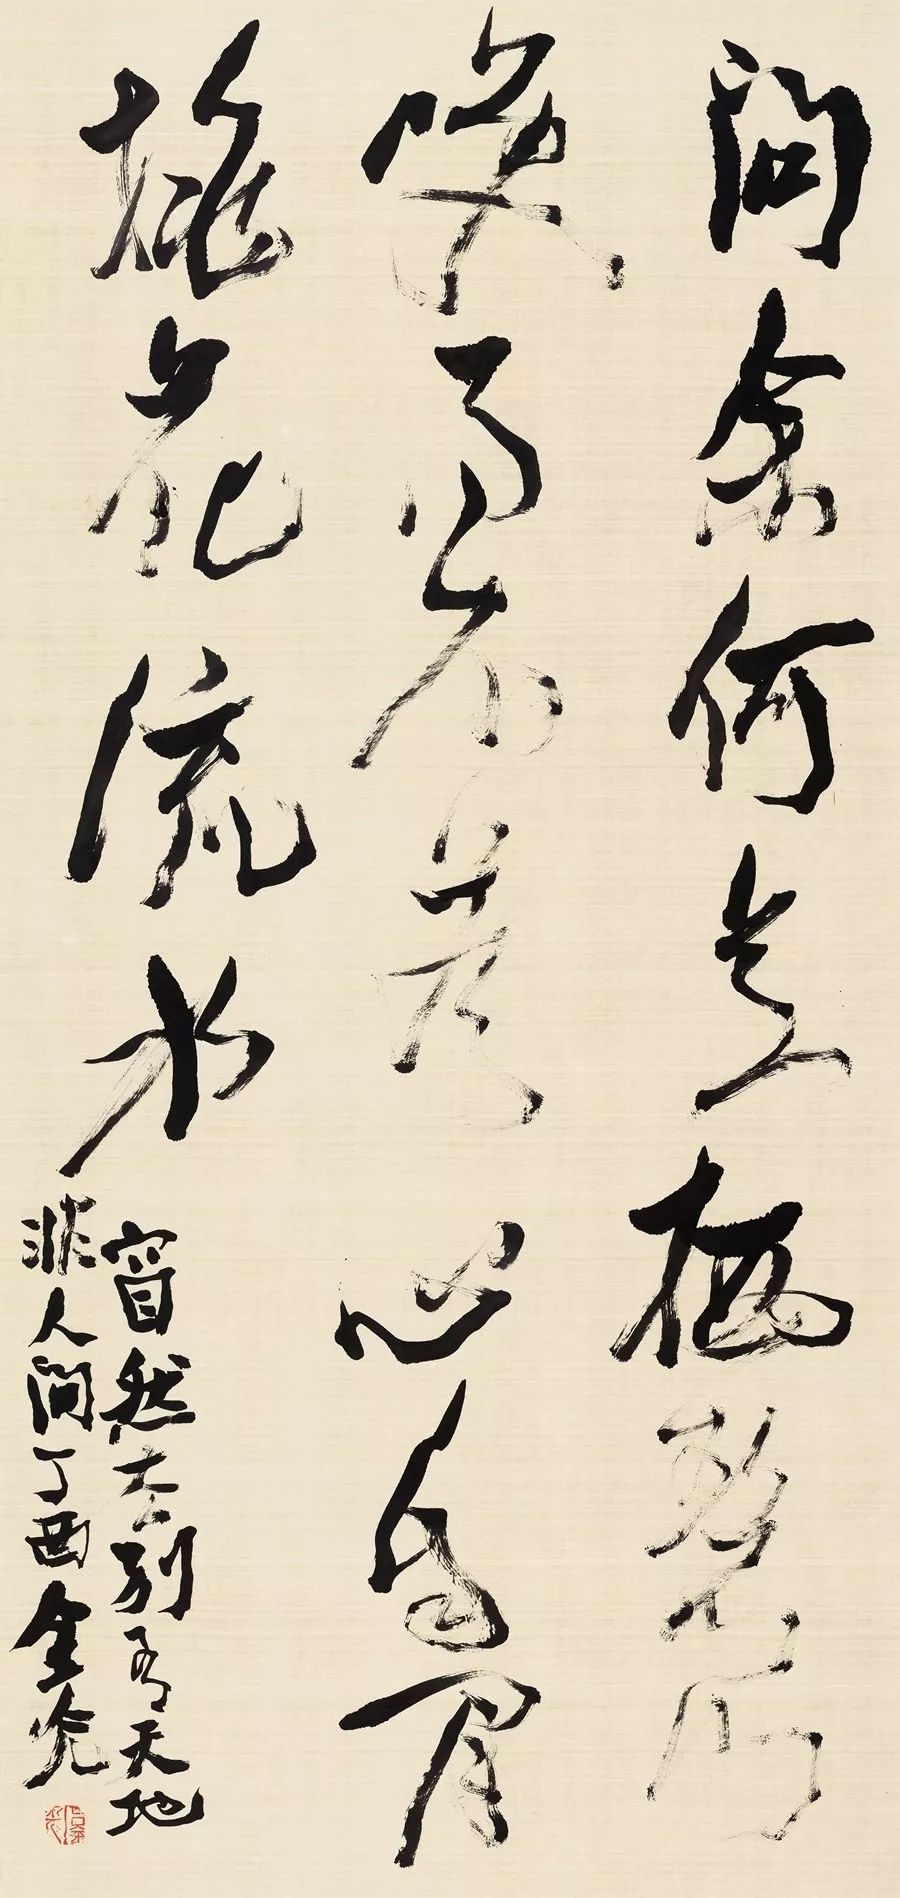 問余何意栖碧山
笑而不答心自閒
桃花流水
窅然去別有天地
非人間丁酉金